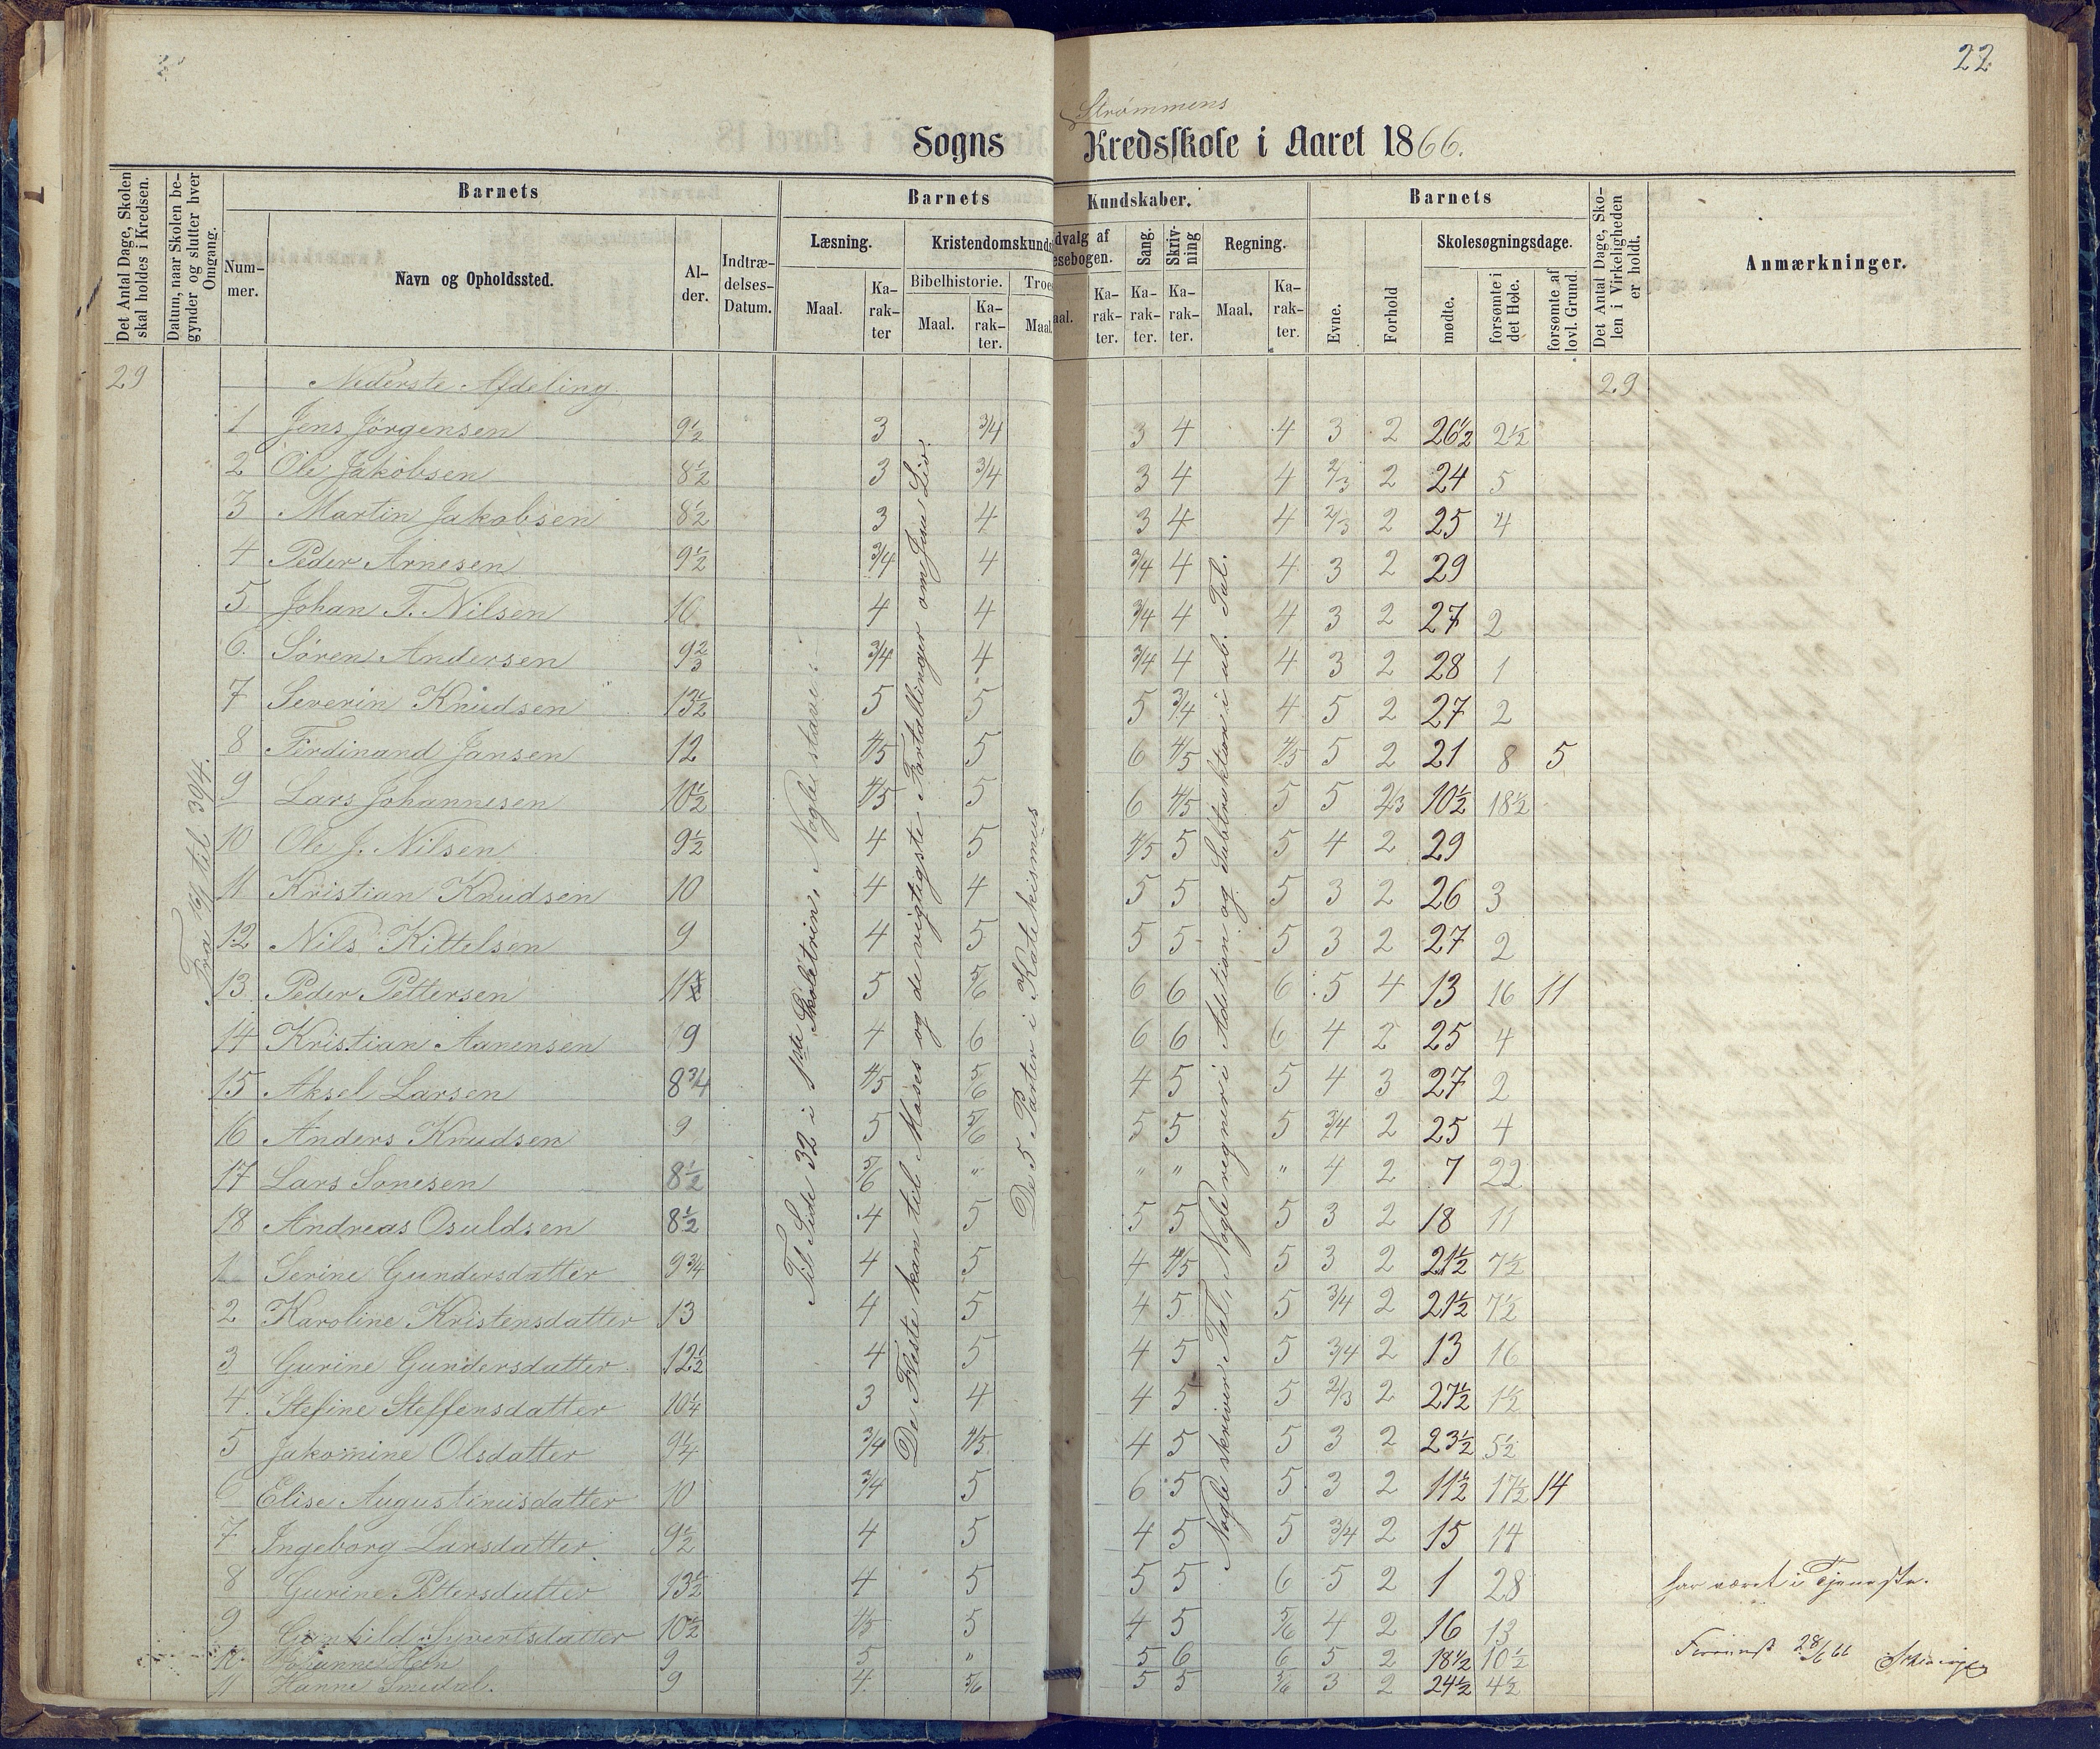 22
Strømmens
Sogns Kredsskole i Aaret 1866.
Det Antal Dage, Skolen skal holdes i Kredsen.
Datum, naar Skolen begynder og slutter hver Omgang.
Barnets
Nummer.
Navn og Opholdssted.
Alder.
Indtrædelses-Datum.
Barnets Kundskaber.
Læsning.
Maal.
Karakter
Kristendomskunds
Bibelhistorie.
Maal.
Karakter.
Troes
Maal.
dvalg af
esebogen.
aal.
Karakter.
Sang.
Karakter.
Skrivning
Karakter.
Regning.
Maal.
Karakter.
Barnets
Evne.
Forhold
Skolesøgningsdage.
mødte.
forsømte i det Hele.
forsømte af lovl. Grund.
Det Antal Dage, Skolen i Virkeligheden er holdt.
Anmærkninger.
29 Nederste Afdeling 29
Fra 16/1 til 30/4.
Til Side 32 i 1ste Skoletrin, Nogle stave.
De Fleste kan til Moses og de vigtigste Fortællinger om Jesu Liv.
De 5 Parter i Katekismus
Nogle skriver Tal, Nogle regner i Addition og Subtraktion i ub. Tal.
1 Jens Jørgensen 9½ 3 3/4 3 4 4 3 2 26½ 2½
2 Ole Jakobsen 8½ 3 3/4 3 4 4 2/3 2 24 5
3 Martin Jakobsen 8½ 3 4 3 4 4 2/3 2 25 4
4 Peder Arnesen 9½ 3/4 4 3/4 4 4 3 2 29
5 Johan T. Nilsen 10 4 4 3/4 4 4 3 2 27 2
6. Søren Andersen 9⅔ 3/4 4 3/4 4 4 3 2 28 1
7 Severin Knudsen 13½ 5 5 5 3/4 4 5 2 27 2
8 Ferdinand Jansen 12 4/5 5 6 4/5 4/5 5 2 21 8 5
9 Lars Johannesen 10½ 4/5 5 6 4/5 5 5 2/3 10½ 18½
10 Ole J. Nilsen 9½ 4 5 4/5 5 5 4 2 29
11 Kristian Knudsen 10 4 4 5 5 5 3 2 26 3
12 Nils Kittelsen 9 4 5 5 5 5 3 2 27 2
13 Peder Pettersen 11 5 5/6 6 6 6 5 4 13 16 11
14 Kristian Aanensen 9 4 6 6 6 6 4 2 25 4
15 Aksel Larsen 8¾ 4/5 5/6 4 5 5 4 3 27 2
16 Anders Knudsen 9 5 5/6 5 5 5 3/4 2 25 4
17 Lars Sønesen 8½ 5/6 " " " " 4 2 7 22
18 Andreas Osuldsen 8½ 4 5 5 5 5 3 2 18 11
1 Serine Gundersdatter 9¾ 4 5 4 4/5 5 3 2 21½ 7½
2 Karoline Kristensdatter 13 4 5 4 5 5 3/4 2 21½ 7½
3 Gurine Gundersdatter 12½ 4 5 4 5 5 3/4 2 13 16
4. Stefine Steffensdatter 10¼ 3 4 4 5 5 2/3 2 27½ 1½
5 Jakomine Olsdatter 9¼ 3/4 4/5 4 5 5 3 2 23½ 5½
6 Elise Augustinusdatter 10 3/4 5 6 5 5 3 2 11½ 17½ 14
7 Ingeborg Larsdatter 9½ 4 5 4 5 5 3/4 2 15 14
8 Gurine Pettersdatter 13½ 4 5 5 5 6 5 2 1 28 har været i Tjeneste.
9 Gunhild Syvertsdatter 10½ 4/5 5 4 5 5/6 4 2 16 13
10. Johanne 9 5 " 5 6 6 5 2 18½ 10½
11 Hanne Smedal. 9 4 5/6 5 5 5/6 3 2 24½ 4½
28/6 66